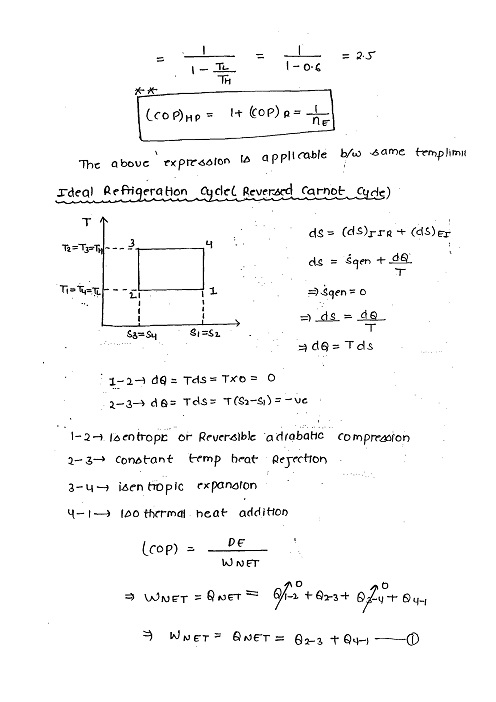 = 1 / (1 − TL/TH) = 1 / (1−0.6) = 2.5
**
(COP)HP = 1+ (COP)R = 1/ηE
The above expression is applicable b/w same templimit
Ideal Refrigeration Cycle( Reversed Carnot Cycle)
T
T2=T3=TH
3 4
T1=T4=TL
2 1
S3=S4 S1=S2
ds = (ds)IRR + (ds)EI
ds = ṡgen + dQ/T
⇒ ṡgen = 0
⇒ ds = dQ/T
⇒ dQ = Tds
1-2→ dQ = Tds = T×0 = 0
2-3→ dQ = Tds = T(S2-S1) = -ve
1-2→ Isentropic or Reversible adiabatic compression
2-3→ Constant temp heat Rejection
3-4→ isentropic expansion
4-1→ Isothermal heat addition
(COP) = DE / WNET
⇒ WNET = QNET = Q1-2 0 + Q2-3 + Q3-4 0 + Q4-1
⇒ WNET = QNET = Q2-3 + Q4-1 —①